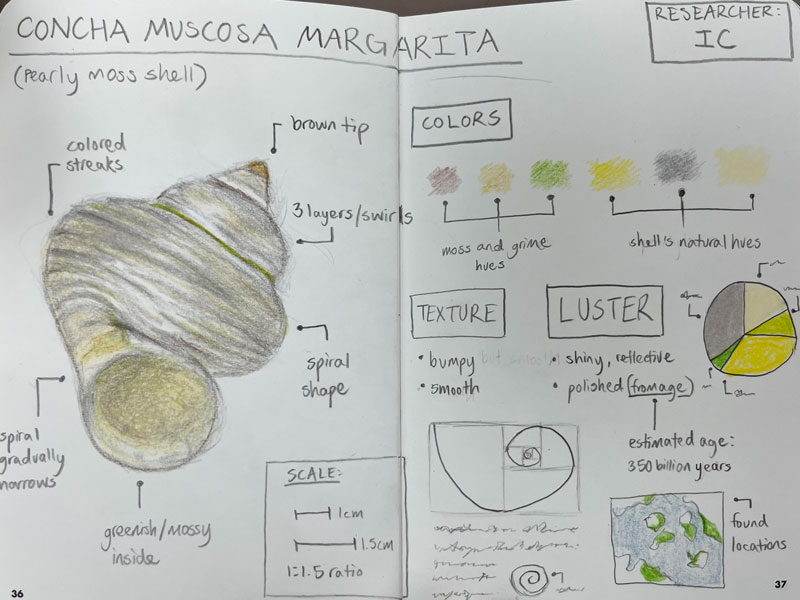 CONCHA MUSCOSA MARGARITA
(pearly moss shell)
RESEARCHER:
IC
colored
streaks
brown tip
3 layers/swirls
spiral
shape
spiral
gradually
narrows
greenish/mossy
inside
SCALE:
1cm
1.5cm
1=1.5 ratio
36
COLORS
moss and grime
hues
shell's natural hues
TEXTURE
• bumpy
• smooth
LUSTER
• shiny, reflective
• polished (from age)
estimated age:
350 billion years
found
locations
37